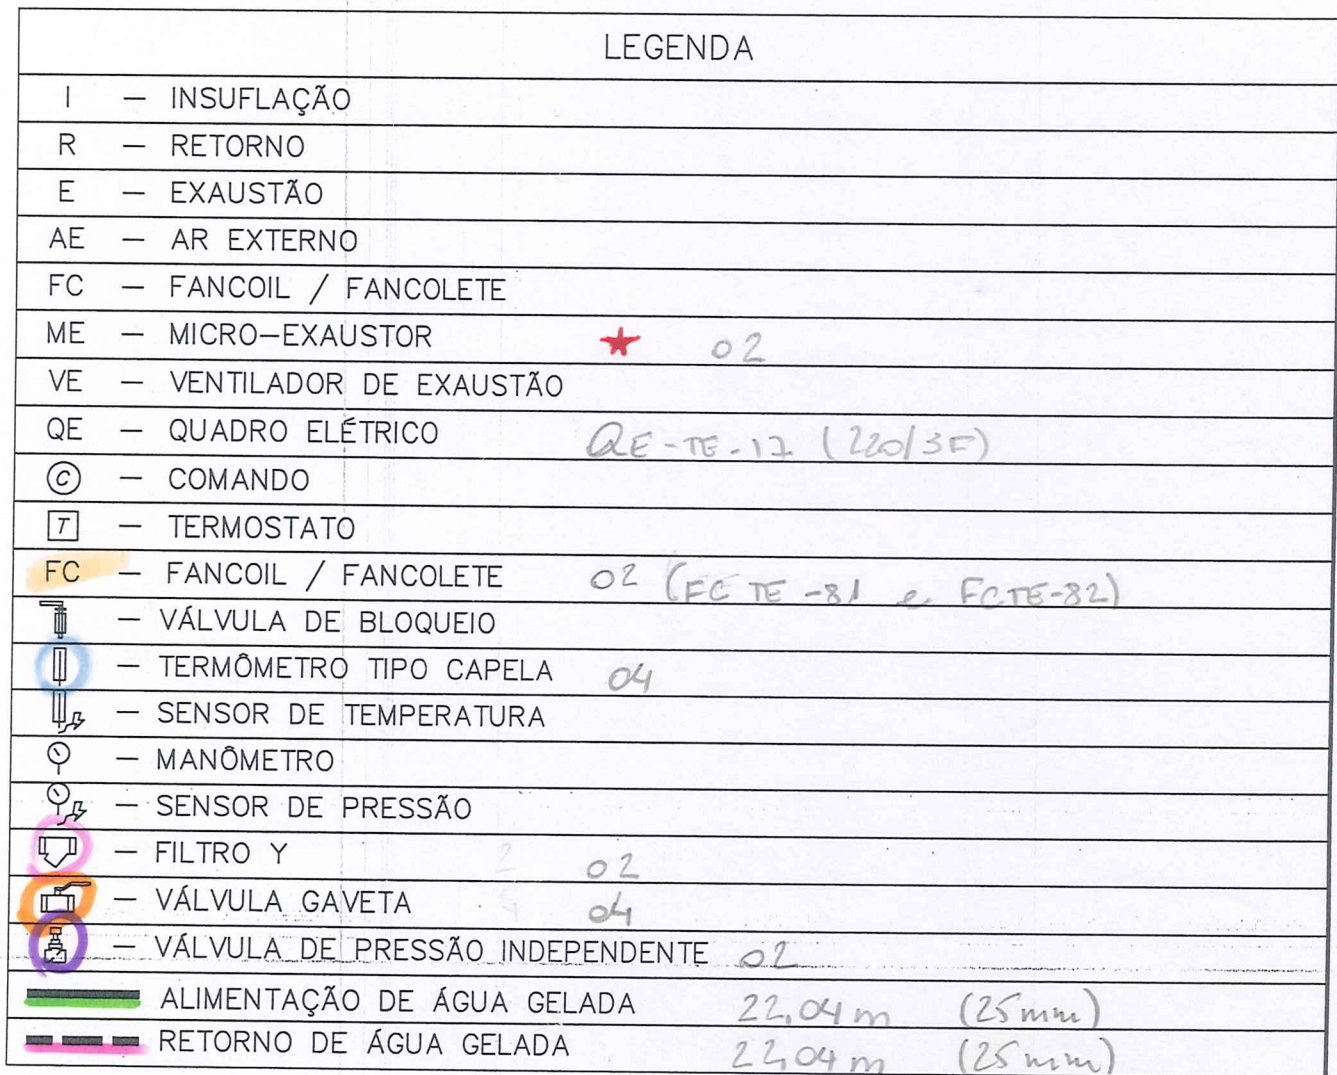 LEGENDA
I — INSUFLAÇÃO
R — RETORNO
E — EXAUSTÃO
AE — AR EXTERNO
FC — FANCOIL / FANCOLETE
ME — MICRO-EXAUSTOR 02
VE — VENTILADOR DE EXAUSTÃO
QE — QUADRO ELÉTRICO QE-TE-17 (220/3F)
C — COMANDO
T — TERMOSTATO
FC — FANCOIL / FANCOLETE 02 (FCTE-81 e FCTE-82)
— VÁLVULA DE BLOQUEIO
— TERMÔMETRO TIPO CAPELA 04
— SENSOR DE TEMPERATURA
— MANÔMETRO
— SENSOR DE PRESSÃO
— FILTRO Y 2 02
— VÁLVULA GAVETA 04
— VÁLVULA DE PRESSÃO INDEPENDENTE 02
ALIMENTAÇÃO DE ÁGUA GELADA 22,04 m (25mm)
RETORNO DE ÁGUA GELADA 22,04 m (25mm)